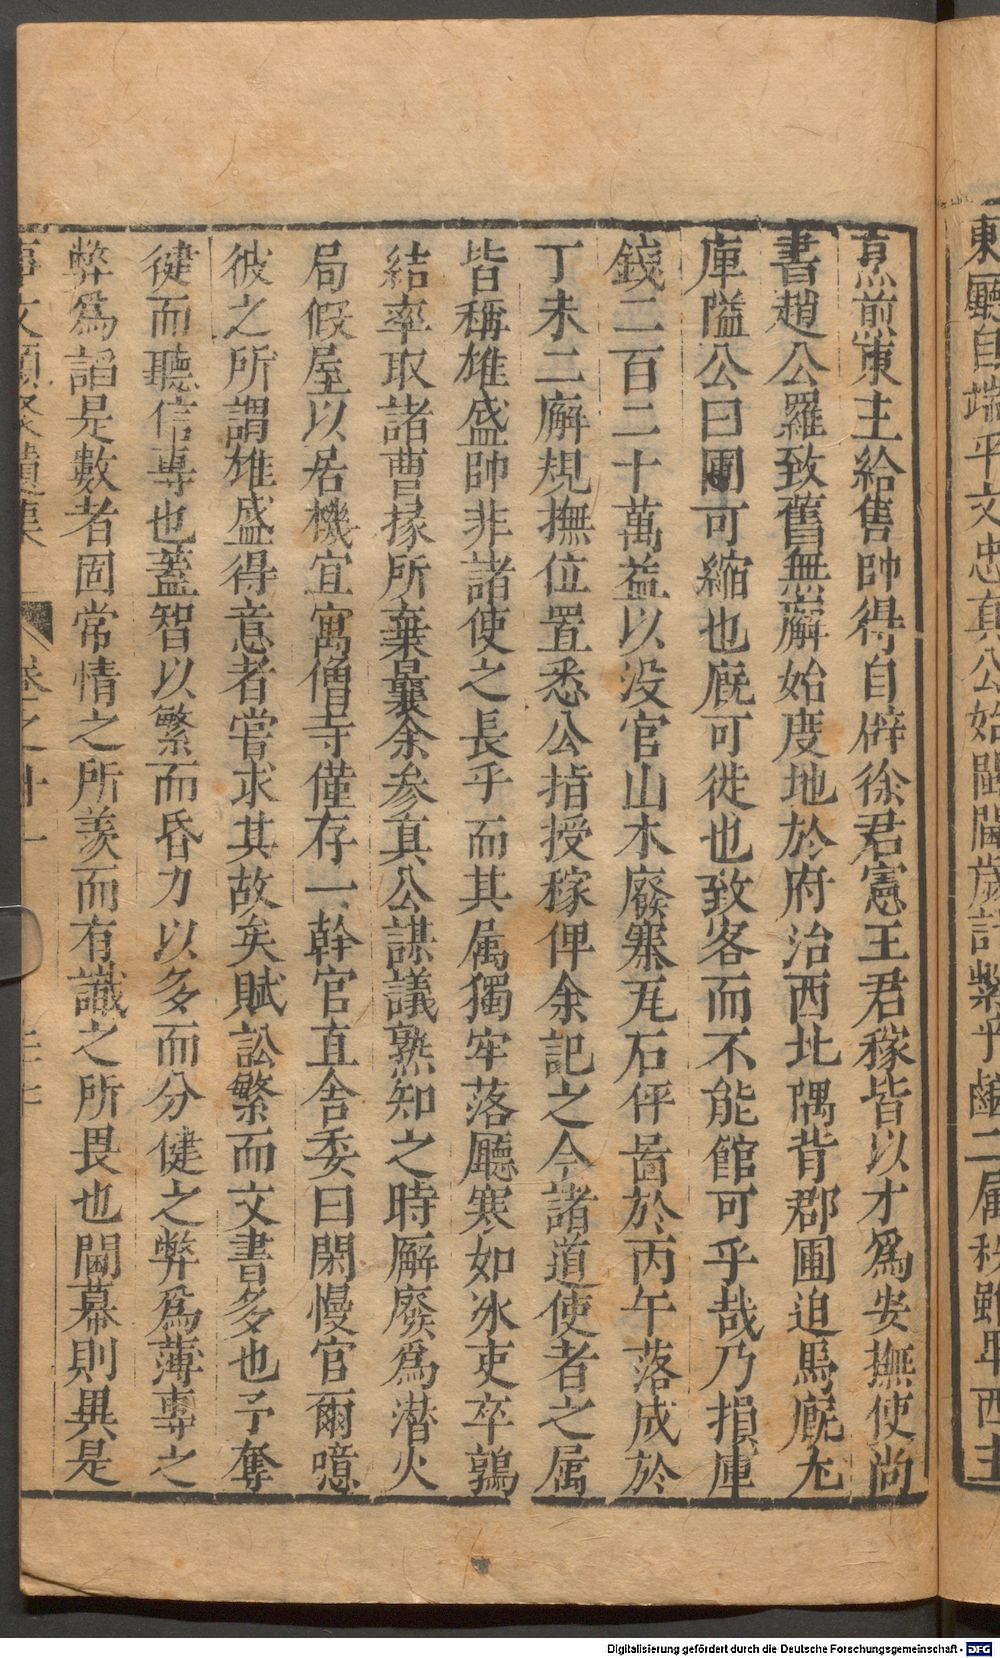 東廳自端平文忠真公始閩閫歲計繫乎鹺二属秩雖卑西主
熬煎東主給售帥得自辟徐君憲王君稼皆以才爲安撫使尚
書趙公羅致舊無廨始度地於府治西北隅背郡圃迫馬廐尢
庫隘公曰圃可縮也廐可徙也致客而不能館可乎哉乃損庫
錢二百二十萬益以没官山木廢寨瓦石伻啚於丙午落成於
丁未二廨規撫位置悉公指授稼俾余記之今諸道使者之属
皆稱雄盛帥非諸使之長乎而其属獨牢落廳寒如冰吏卒鶉
結率取諸曹掾所棄曩余参真公謀議熟知之時廨廢爲潜火
局假屋以居機宜寓僧寺僅存一幹官直舍委曰閑慢官爾噫
彼之所謂雄盛得意者嘗求其故矣賦訟繁而文書多也予奪
徤而聽信專也蓋智以繁而昏力以多而分健之弊爲薄專之
弊爲謟是數者固常情之所羨而有識之所畏也閫幕則異是
事文類聚遺集 卷之十一
Digitalisierung gefördert durch die Deutsche Forschungsgemeinschaft - DFG